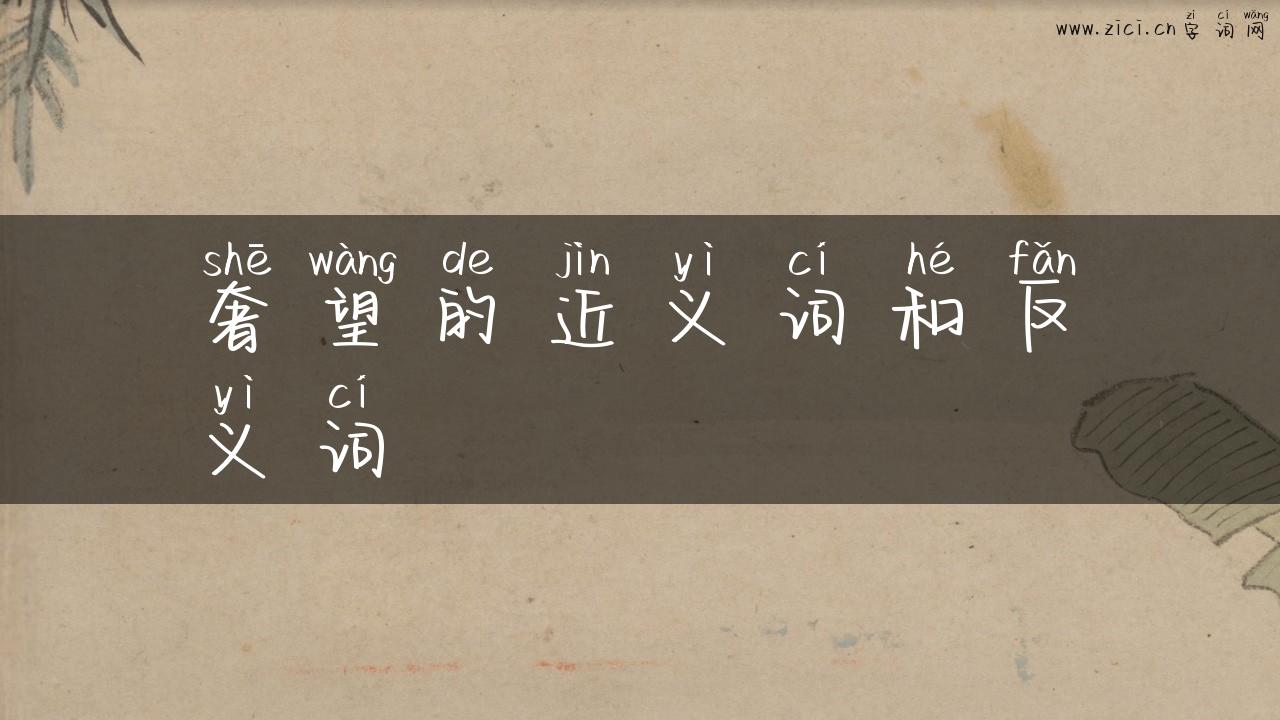 zì cí wǎng
www.zici.cn 字词网
shē wàng de jìn yì cí hé fǎn
奢望的近义词和反
yì cí
义词